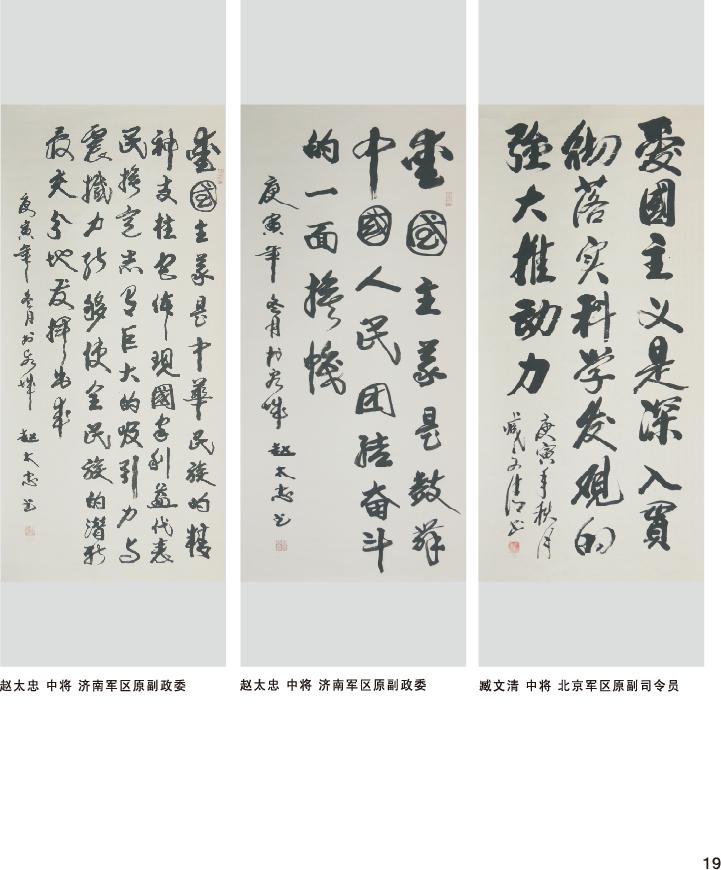 愛國主義是中華民族的精
神支柱它体現國家利益代表
民族意志巨大的吸引力与
震撼力能够使全民族的潜能
最充分地发揮出来
庚寅年冬月於泉城 趙太忠书
愛國主義是鼓舞
中國人民团结奋斗
的一面旗幟
庚寅年冬月於泉城 趙太忠书
愛國主义是深入貫
彻落实科学发观的
强大推动力
庚寅年秋月
臧文清书
赵太忠 中将 济南军区原副政委
赵太忠 中将 济南军区原副政委
臧文清 中将 北京军区原副司令员
19